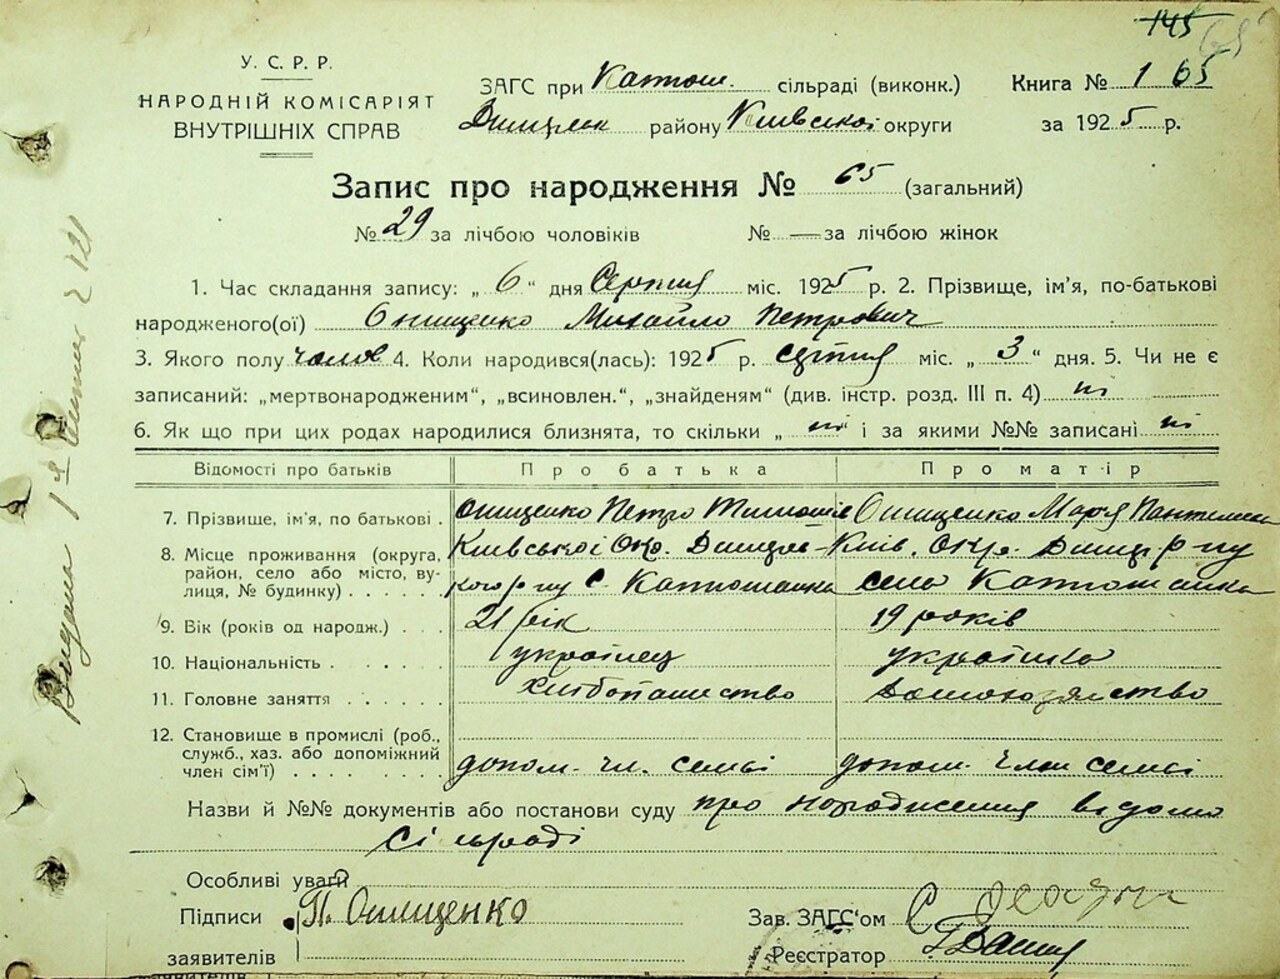 145 65
У. С. Р. Р.
НАРОДНІЙ КОМІСАРІЯТ
ВНУТРІШНІХ СПРАВ
ЗАГС при Катюш. сільраді (виконк.) Книга № 1 65
Димерськ району Київської округи за 1925 р.
Запис про народження № 65 (загальний)
№ 29 за лічбою чоловіків № — за лічбою жінок
1. Час складання запису: „ 6 “ дня Серпня міс. 1925 р. 2. Прізвище, ім'я, по-батькові
народженого(ої) Онищенко Михайло Петрович
3. Якого полу чолов 4. Коли народився(лась): 1925 р. серпня міс. „ 3 “ дня. 5. Чи не є
записаний: „мертвонародженим“, „всиновлен.“, „знайденям“ (див. інстр. розд. III п. 4) ні
6. Як що при цих родах народилися близнята, то скільки „ ні “ і за якими №№ записані ні
Відомості про батьків Про батька Про матір
7. Прізвище, ім'я, по батькові . Онищенко Петро Онищенко Мар'я
8. Місце проживання (округа, Київської Окр. Димерс- Київ. Окр. Димер р-ну
район, село або місто, ву- кого р-ну с. Катюшанка село Катюшанка
лиця, № будинку) . . . . . .
9. Вік (років од народж.) . . . 21 рік 19 років
10. Національність . . . . . . українец українка
11. Головне заняття . . . . . . хлібопашество домохозяйство
12. Становище в промислі (роб.,
служб., хаз. або допоміжний
член сім'ї) . . . . . . . . допом. чл. семьї допом. член семьї
Назви й №№ документів або постанови суду про народження відомо
Сільраді
Особливі уваги
Підписи П. Онищенко Зав. ЗАГС'ом
заявителів Реєстратор
Видана 1-я